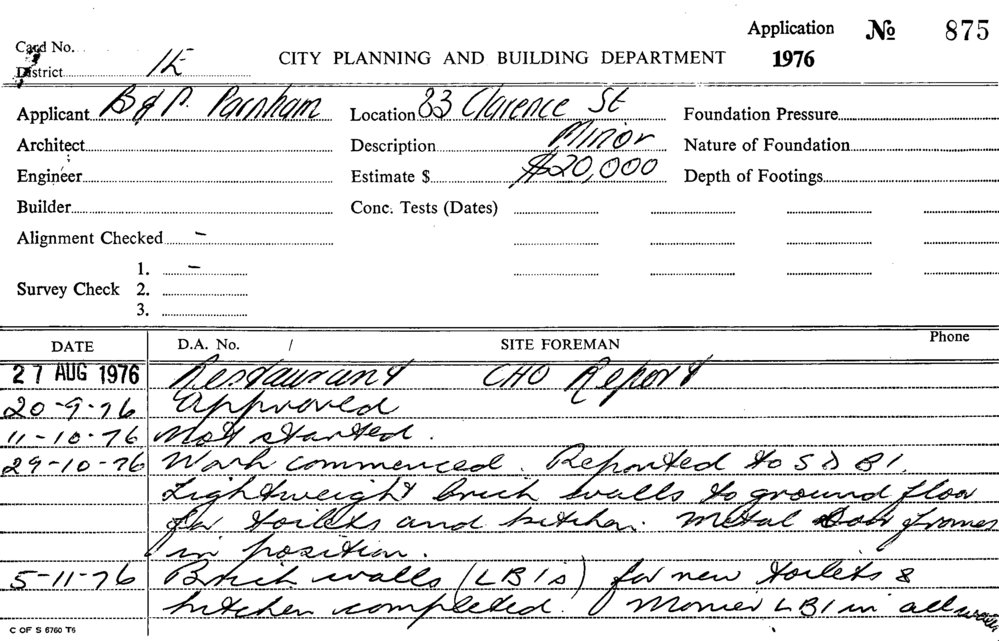 Application No 875
Card No.
District 1E CITY PLANNING AND BUILDING DEPARTMENT 1976
Applicant B & P. Parnham Location 83 Clarence St Foundation Pressure
Architect Description Minor Nature of Foundation
Engineer Estimate $ $20,000 Depth of Footings
Builder Conc. Tests (Dates)
Alignment Checked –
1. –
Survey Check 2.
3.
DATE D.A. No. / SITE FOREMAN Phone
27 AUG 1976 Restaurant CHO Report
20-9-76 Approved
11-10-76 Not started.
29-10-76 Work commenced. Reported to S D B I.
Lightweight brick walls to ground floor
for toilets and kitchen. Metal door frames
in position.
5-11-76 Brick walls (LBI's) for new toilets &
kitchen completed. Monier LBI in all walls
C OF S 6760 T6